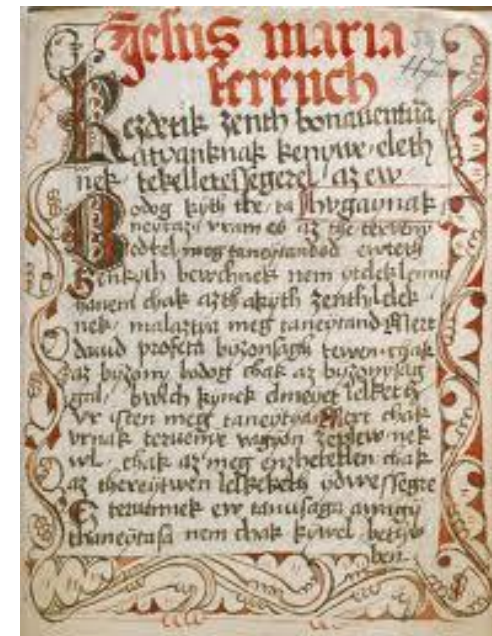 Jesus maria
ferench
Kezdetik zenth bonauentura
Atyanknak kenywe eleth
nek tekelletessegerel az ew
Bodog kyth the ta Hwgaynak
neytaz vram es az the terveny
edbel meg taneytandod ewteth
Senkyth bewchnek nem ytelek lenny
hanem chak azth akyth zenth lelek
nek malaztya meg taneytand Mert
dauid profeta byzonsaga tewen chak
az byzony bodog chak az byzonysag
gal bwlch kynek elmeyet lelketh
vr isten meg taneytya Mert chak
vrnak teruenye vagyon zeplew nek
wl chak az meg enzhetetlen chak
az thereytwen lelkeketh ydwessegre
E teruennek ew tanusaga auagy
thaneytasa nem chak kywel betyw
ben